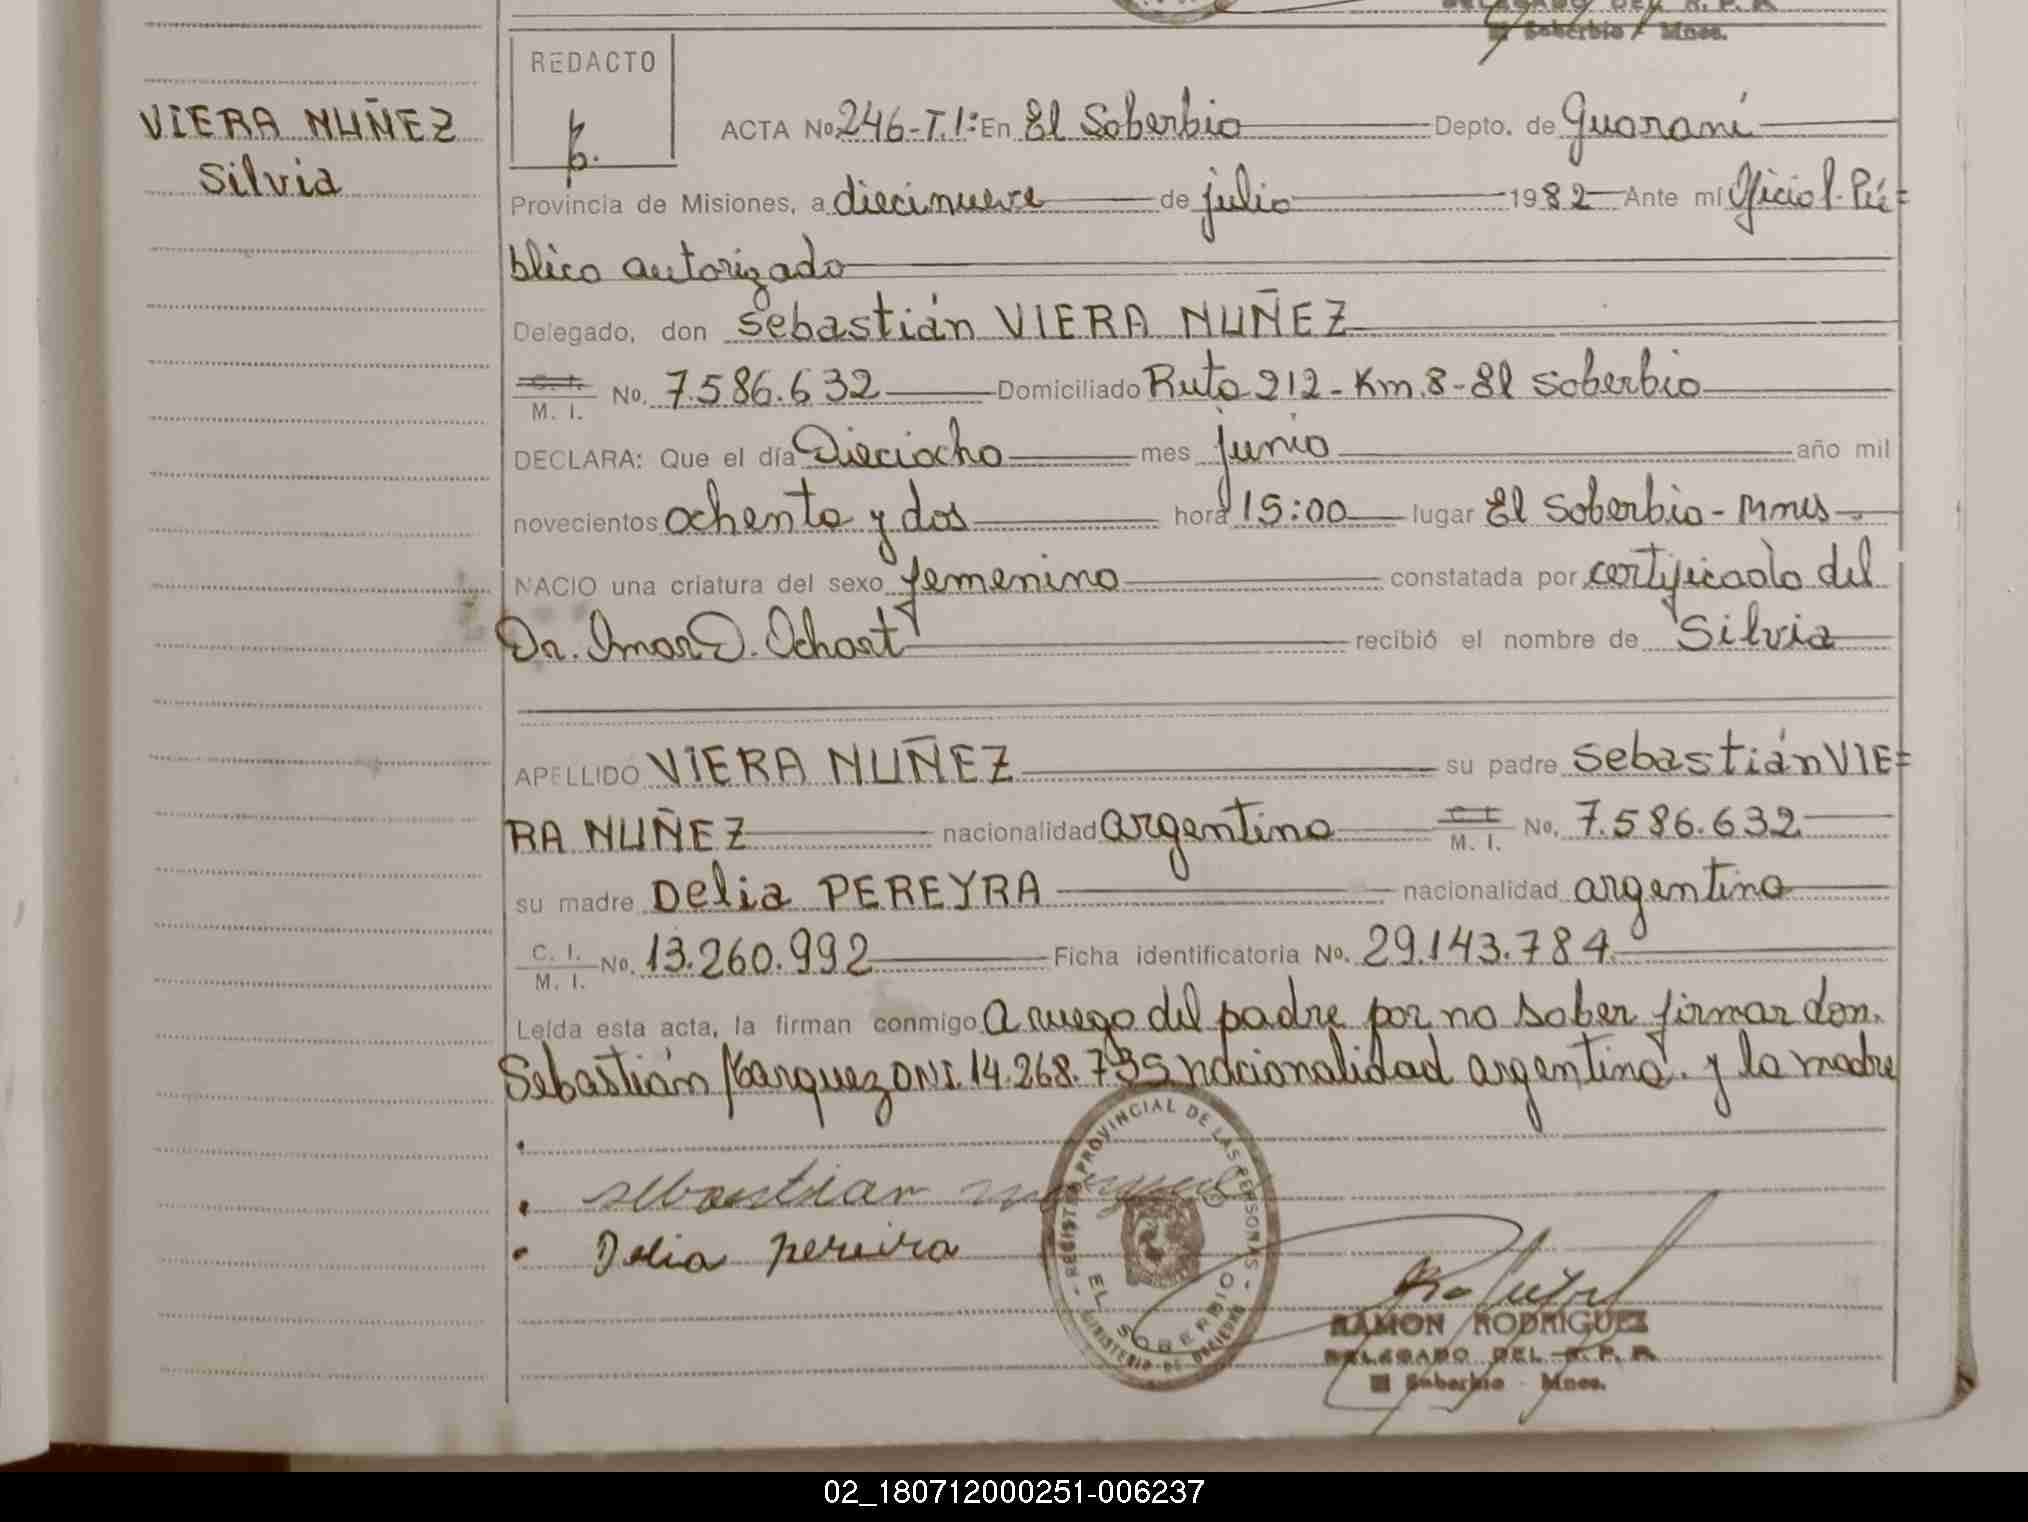 DELEGADO DEL R. P. P.
El Soberbio Mnes.
VIERA NUÑEZ
Silvia
REDACTO
ACTA No. 246-T.I: En El Soberbio Depto. de Guaraní
Provincia de Misiones, a diecinueve de julio 1982 Ante mí Oficial Pú=
blico autorizado
Delegado, don Sebastián VIERA NUÑEZ
C. I.
M. I. No. 7.586.632 Domiciliado Ruta 212-Km.8-El Soberbio
DECLARA: Que el día Dieciocho mes junio año mil
novecientos ochenta y dos hora 15:00 lugar El Soberbio-Mnes
NACIO una criatura del sexo femenino constatada por certificado del
Dr. Omar D. Ochart recibió el nombre de Silvia
APELLIDO VIERA NUÑEZ su padre Sebastián VIE=
RA NUÑEZ nacionalidad argentino C. I. M. I. No. 7.586.632
su madre Delia PEREYRA nacionalidad argentina
C. I.
M. I. No. 13.260.992 Ficha identificatoria No. 29.143.784
Leída esta acta, la firman conmigo A ruego del padre por no saber firmar don.
Sebastián Marquez DNI. 14.268.735 nacionalidad argentina. y la madre
sebastian marquez
Delia pereira
REGISTRO PROVINCIAL DE LAS PERSONAS
EL SOBERBIO
MINISTERIO DE GOBIERNO
RAMON RODRIGUEZ
DELEGADO DEL R. P. P.
El Soberbio - Mnes.
02_180712000251-006237